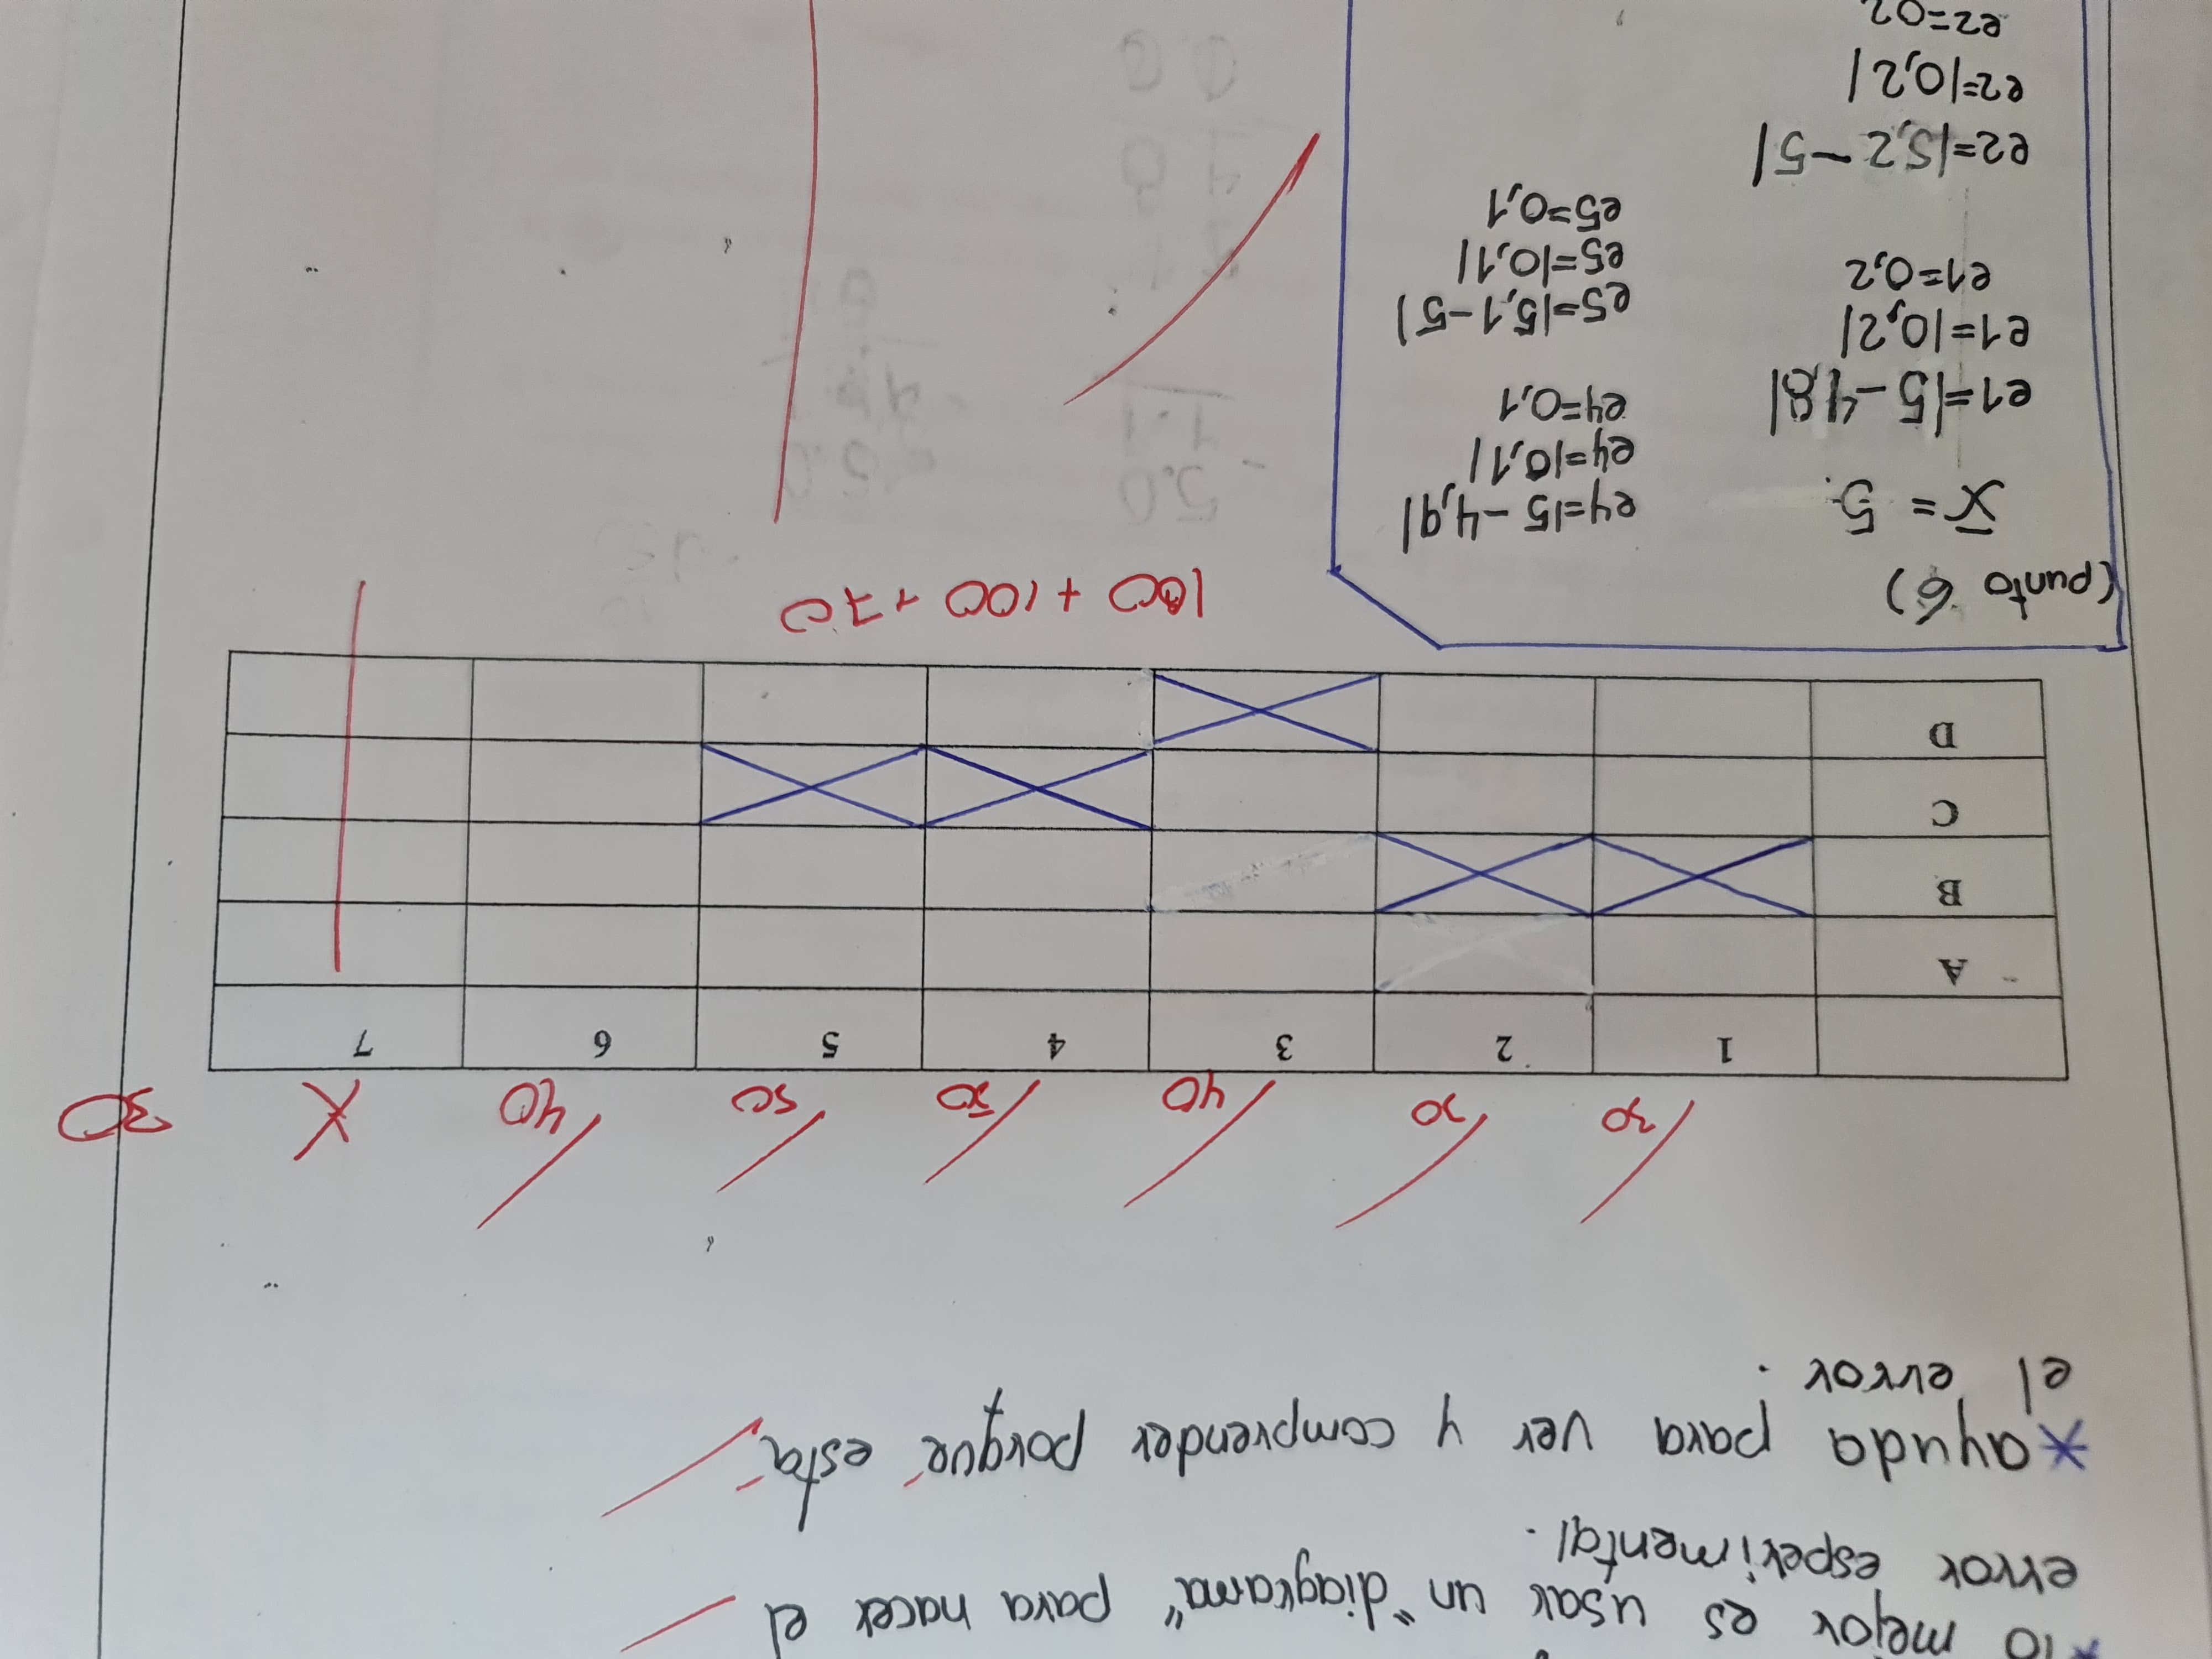 *lo mejor es usar un "diagrama" para hacer el
error esperimental.
*ayuda para ver y comprender porqué está
el error.
30 30 40 50 50 40 X 30
1 2 3 4 5 6 7
A
B
C
D
100 + 100 + 70
(punto 6)
x̄ = 5
e1=|5-4,8|
e1=|0,2|
e1=0,2
e2=|5,2-5|
e2=|0,2|
e2=0,2
e4=|5-4,9|
e4=|0,1|
e4=0,1
e5=|5,1-5|
e5=|0,1|
e5=0,1